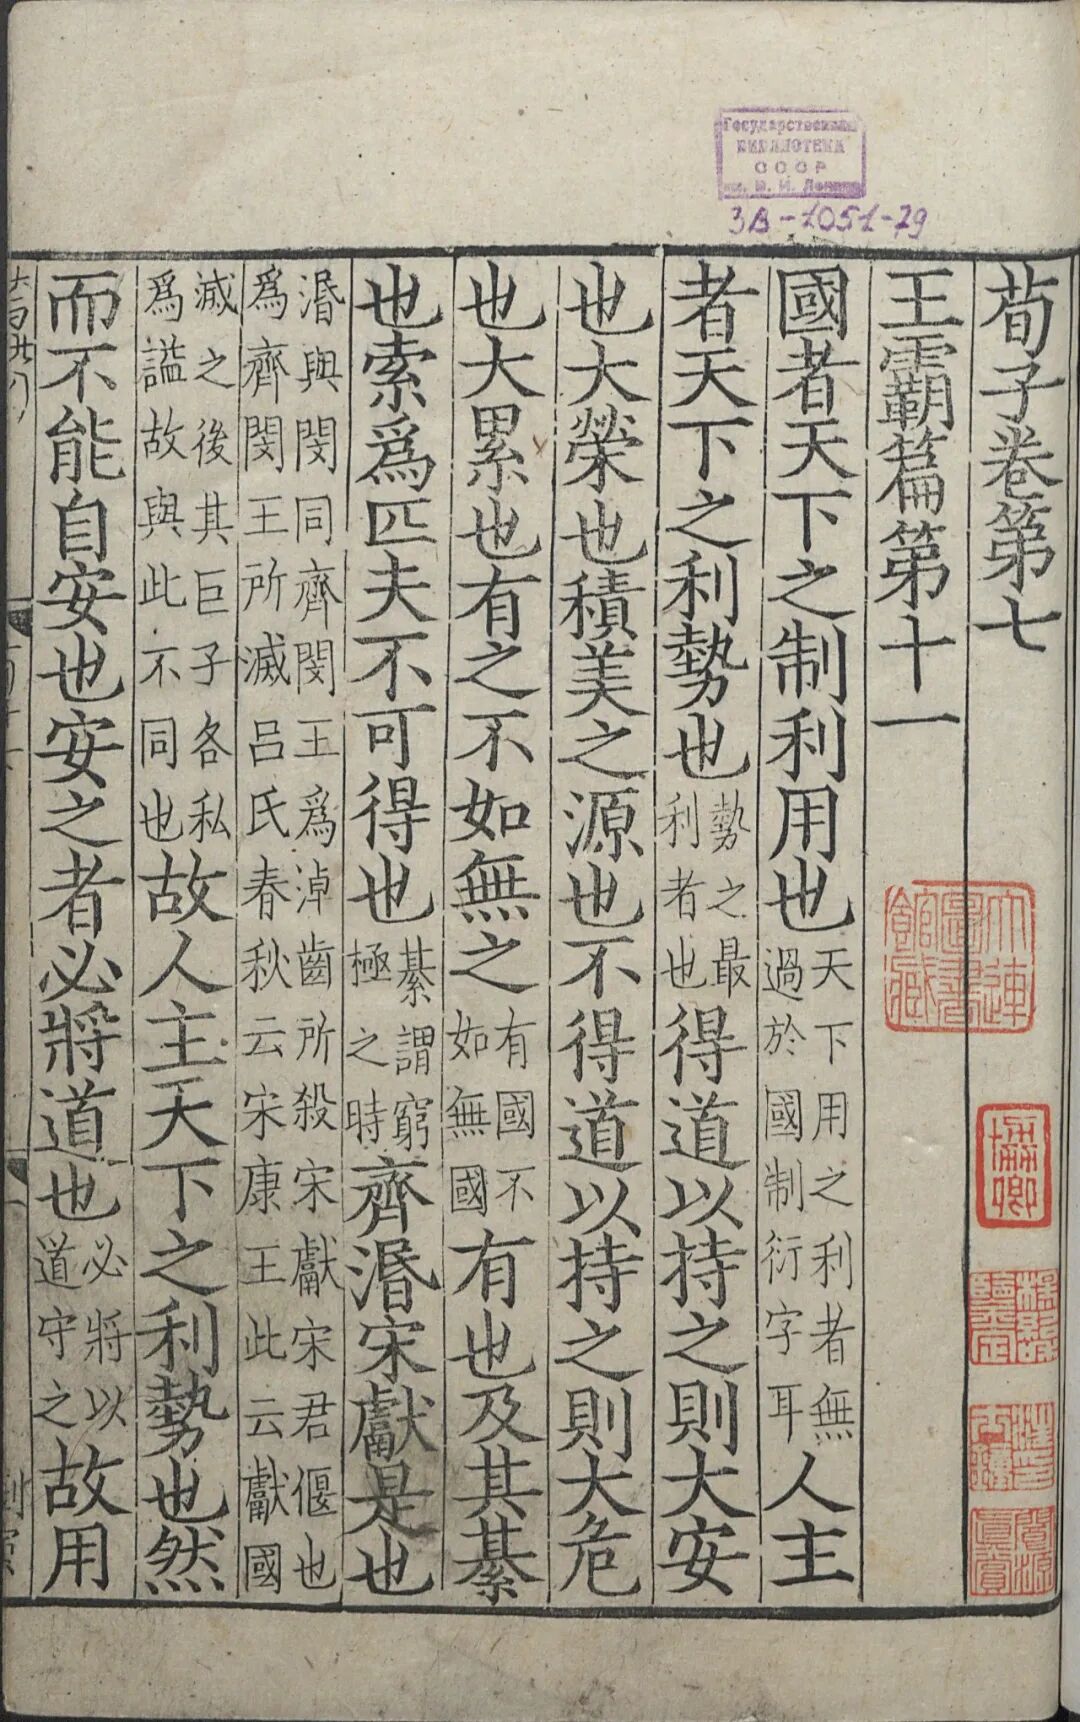 Государственная
БИБЛИОТЕКА
СССР
им. В. И. Ленина
3В-1051-79
荀子卷第七
王霸篇第十一
國者天下之制利用也天下用之利者無過於國制衍字耳人主
者天下之利勢也勢之最利者也得道以持之則大安
也大榮也積美之源也不得道以持之則大危
也大累也有之不如無之有國不如無國有也及其綦
也索爲匹夫不可得也綦謂窮極之時齊湣宋獻是也
湣與閔同齊閔王爲淖齒所殺宋獻宋君偃也爲齊閔王所滅呂氏春秋云宋康王此云獻國
滅之後其臣子各私爲謚故與此不同也故人主天下之利勢也然
而不能自安也安之者必將道也必將以道守之故用
大連圖書館藏